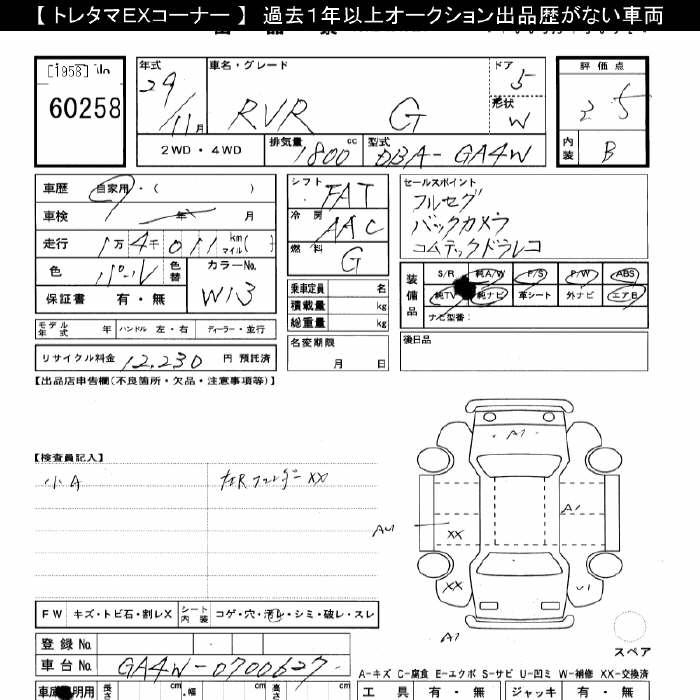 【 トレタマEXコーナー 】 過去1年以上オークション出品歴がない車両
60258
年式 29/11月
車名・グレード RVR G
ドア 5
形状 W
評価点
内装 B
2WD・4WD
排気量 1800cc
型式 DBA-GA4W
車歴 自家用・( )
車検 年 月
走行 1万4千011km マイル( )
色 パール
色替
カラーNo. W13
保証書 有・無
シフト FAT
冷房 AAC
燃料 G
乗車定員 名
積載量 kg
総重量 kg
セールスポイント
フルセグ
バックカメラ
コムテックドラレコ
装備品
S/R 純A/W P/S P/W ABS
純TV 純ナビ 革シート 外ナビ エアB
ナビ型番:
モデル年式 年 ハンドル 左・右 ディーラー・並行
リサイクル料金 12,230 円 預託済
名変期限
月 日
後日品
【出品店申告欄(不良箇所・欠品・注意事項等)】
【検査員記入】
小A
左Rフェンダー XX
A1
A1
AU
XX
XX
U1
A1
スペア
FW キズ・トビ石・割レX シート内装 コゲ・穴・汚レ・シミ・破レ・スレ
登録No.
車台No. GA4W-0700627
A-キズ C-腐食 E-エクボ S-サビ U-凹ミ W-補修 XX-交換済
長さ cm ・幅 cm 高さ cm
工具 有・無 ジャッキ 有・無